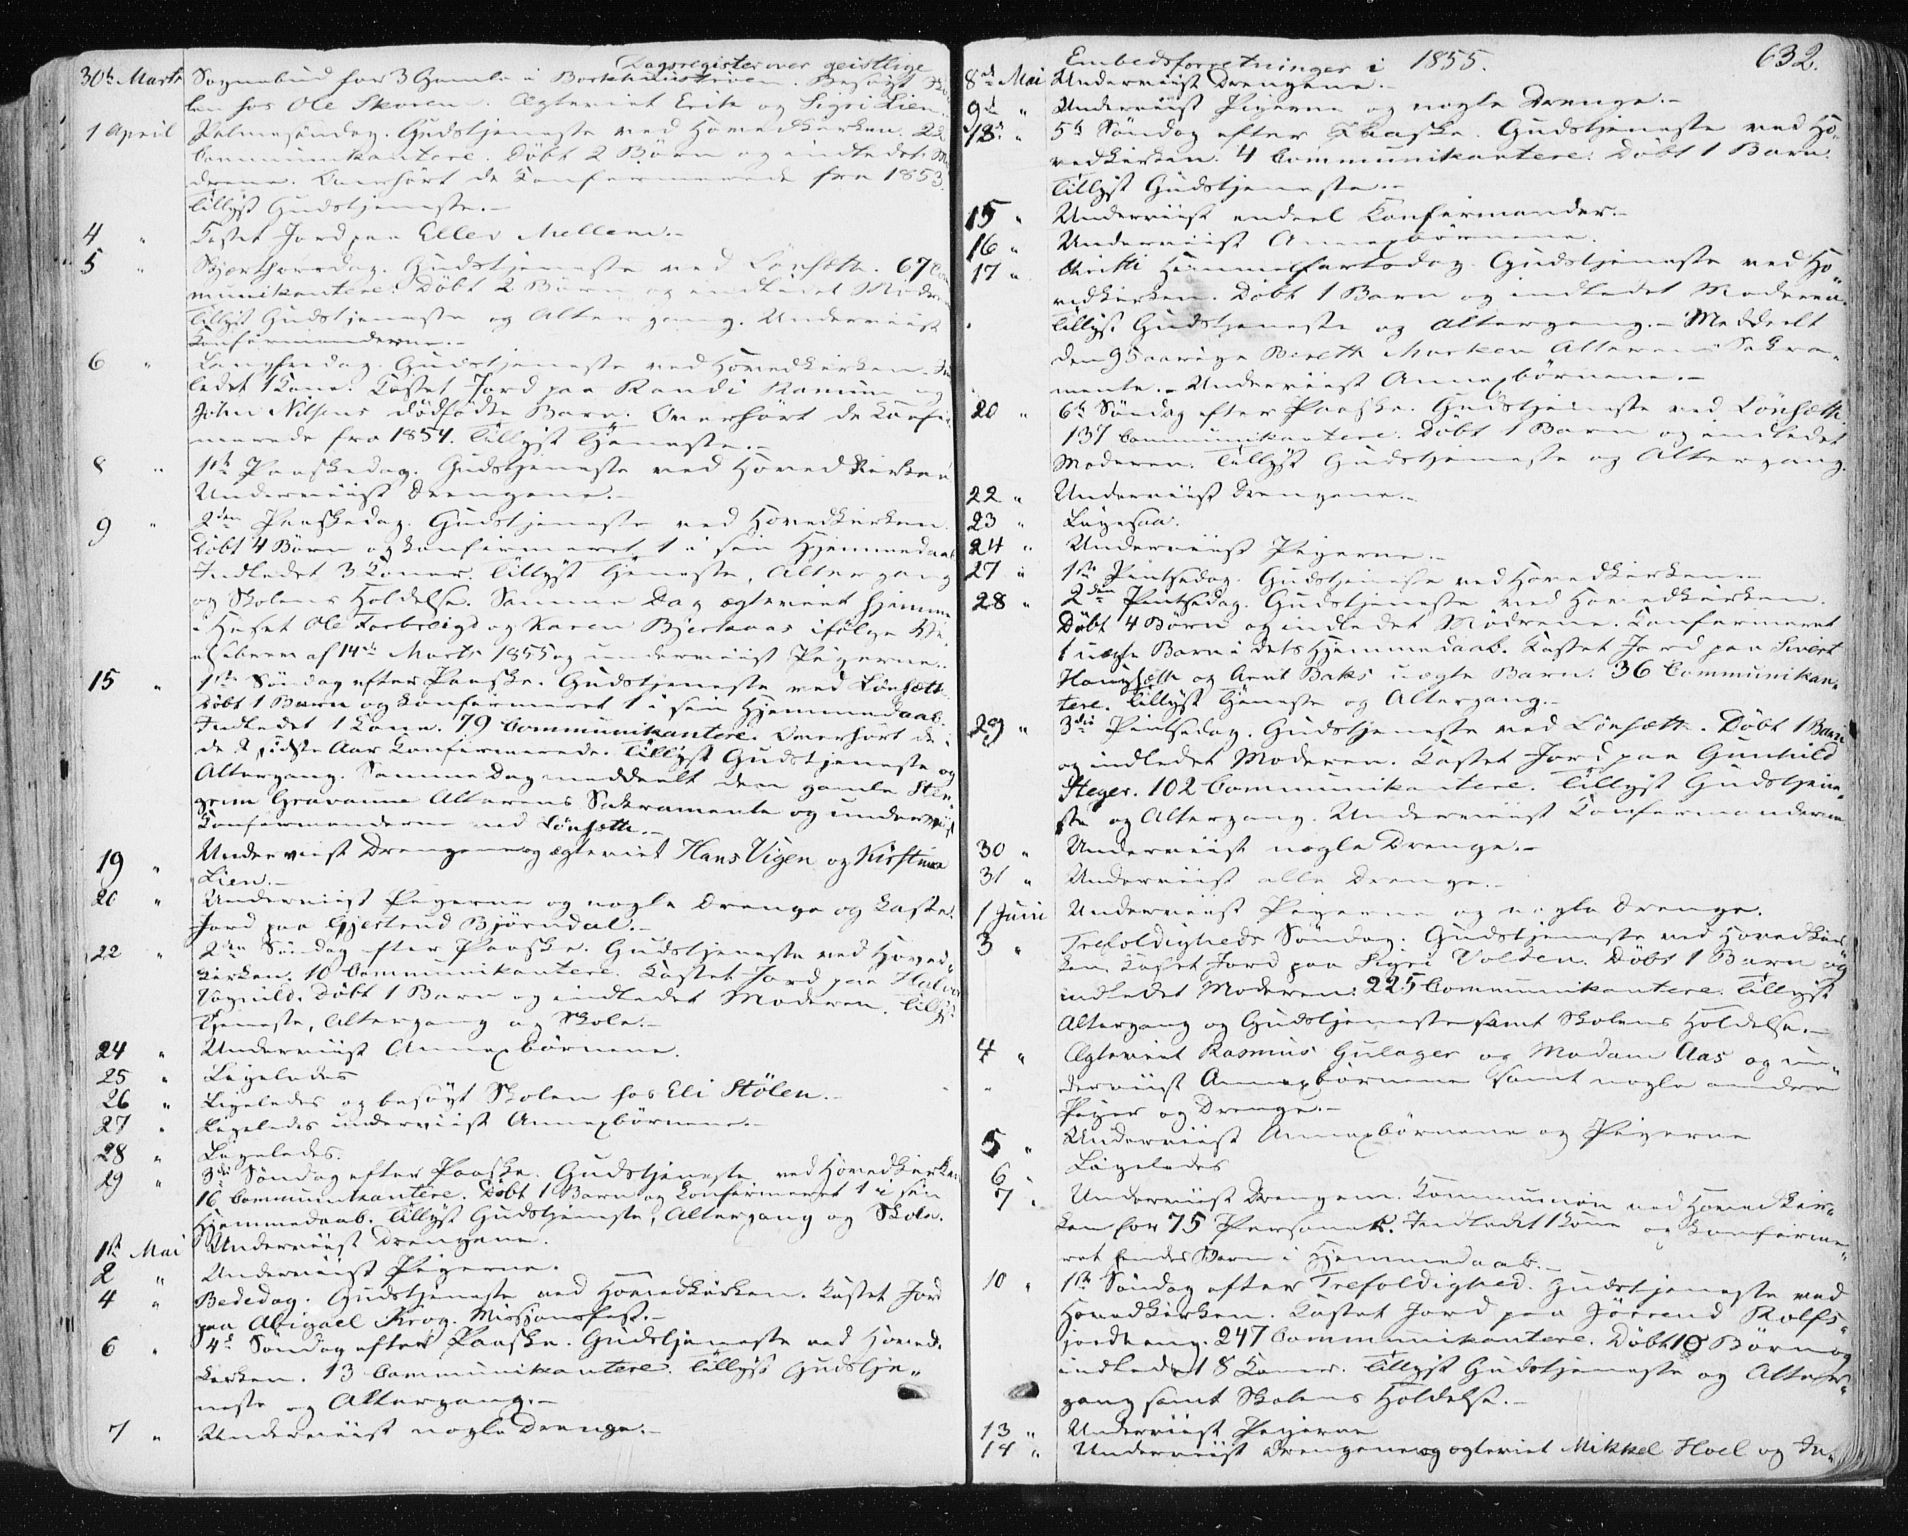 Dagsregister over geistlige
30te Marts Sognebud for 3 Gamle i . Besøgt Sko-
len hos Ole Skoren. Ægteviet Erik og Sigri Lien.
1 April Palmesøndag. Gudstjeneste ved Hovedkirken. 22
Communikantere. Døbt 2 Børn og indledet Mø-
drene. Overhørt de Confirmerede fra 1853.
Tillyst Gudstjeneste.-
4 " Kastet Jord paa Ellev Mellem.-
5 " Skjærthorsdag. Gudstjeneste ved Lønsæth. 67 Com
munikantere. Døbt 2 Børn og indledet Mødrene
Tillyst Gudstjeneste og Altergang. Underviist
Confirmanderne.-
6 " Langfredag. Gudstjeneste ved Hovedkirken. Ind
ledet 1 Kone. Kastet Jord paa Randi Ramum og
John Nilsens dødfødte Barn. Overhørt de Confir-
merede fra 1854. Tillyst Tjeneste.-
8 " 1ste Paaskedag. Gudstjeneste ved Hovedkirken
Underviist Drengene.-
9 " 2den Paaskedag. Gudstjeneste ved Hovedkirken.
Døbt 4 Børn og konfirmeret 1 i sin Hjemmedaab
Indledet 3 Koner. Tillyst Tjeneste, Altergang
og Skolens Holdelse. Samme Dag ægteviet hjemme
i Huset Ole og Karen Bjerkaas ifølge Be
af 14de Marts 1855 og underviist Pigerne.
15 " 1ste Søndag efter Paaske. Gudstjeneste ved Lønsæth
Døbt 1 Barn og konfirmeret 1 i sin Hjemmedaab.
Indledet 1 Kone. 79 Communikantere. Overhørt de i
de 2 sidste Aar Confirmerede. Tillyst Gudstjeneste og
Altergang. Samme Dag meddeelt den gamle Sten-
grim Gravaune Alterens Sakramente og underviist
Confirmanderne ved Lønsæth.-
19 " Underviist Drengene og ægteviet Hans Vigen og Kirstine
Lien.-
20 " Underviist Pigerne og nogle Drenge og kastet
Jord paa Gjertrud Bjørndal.-
22 " 2den Søndag efter Paaske. Gudstjeneste ved Hoved-
kirken. 10 Communikantere. Kastet Jord paa Halvor
Vognild. Døbt 1 Barn og indledet Moderen. Tillyst
Tjeneste, Altergang og Skole.-
24 " Underviist Annexbørnene.
25 " Ligeledes
26 " Ligeledes og besøgt Skolen hos Eli Stølen.-
27 " Ligeledes underviist Annexbørnene.-
28 " Ligeledes.
29 " 3die Søndag efter Paaske. Gudstjeneste ved Hovedkirken
16 Communikantere. Døbt 1 Barn og konfirmeret 1 i sin
Hjemmedaab. Tillyst Gudstjeneste, Altergang og Skole.
1ste Mai Underviist Drengene.
2 " Underviist Pigerne.
4 " Bededag. Gudstjeneste ved Hovedkirken. Kastet Jord
paa Abigael Krog. Missionsfest.-
6 " 4de Søndag efter Paaske. Gudstjeneste ved Hoved-
kirken. 13 Communikantere. Tillyst Gudstje-
neste og Altergang.-
7 " Underviist nogle Drenge.-
Embedsforretninger i 1855. 632.
8de Mai Underviist Drengene.-
9de " Underviist Pigerne og nogle Drenge.-
13de " 5te Søndag efter Paaske. Gudstjeneste ved Ho-
vedkirken. 4 Communikantere. Døbt 1 Barn.
Tillyst Gudstjeneste.-
15 " Underviist endeel Confirmander.-
16 " Underviist Annexbørnene.
17 " Christi Himmelfartsdag. Gudstjeneste ved Ho-
vedkirken. Døbt 1 Barn og indledet Moderen.
Tillyst Gudstjeneste og Altergang.- Meddeelt
den 95aarige Bereth Alterens Sakra-
mente.- Underviist Annexbørnene.-
20 " 6te Søndag efter Paaske. Gudstjeneste ved Lønsæth
137 Communikantere. Døbt 1 Barn og indledet
Moderen. Tillyst Gudstjeneste og Altergang.
22 " Underviist Drengene.-
23 " Ligesaa.
24 " Underviist Pigerne.-
27 " 1ste Pintsedag. Gudstjeneste ved Hovedkirken.-
28 " 2den Pintsedag. Gudstjeneste ved Hovedkirken.
Døbt 4 Børn og indledet Mødrene. Confirmeret
1 uægte Barn i dets Hjemmedaab. Kastet Jord paa Sivert
Haugsæth og Arnt Baks uægte Barn. 36 Communikan-
tere. Tillyst Tjeneste og Altergang.-
29 " 3die Pintsedag. Gudstjeneste ved Lønsæth. Døbt 1 Barn
og indledet Moderen. Kastet Jord paa Gunhild
Heger. 102 Communikantere. Tillyst Gudstjene-
ste og Altergang. Underviist Confirmanderne
30 " Underviist nogle Drenge.-
31 " Underviist alle Drenge.-
1 Juni Underviist Pigerne og nogle Drenge.
3 " Trefoldigheds Søndag. Gudstjeneste ved Hovedkir-
ken. Kastet Jord paa Sigri Volden. Døbt 1 Barn og
indledet Moderen. 225 Communikantere. Tillyst
Altergang og Gudstjeneste samt Skolens Holdelse.-
4 " Ægteviet Rasmus Gulager og Madam Aas og un-
derviist Annexbørnene samt nogle andre
Piger og Drenge.-
5 " Underviist Annexbørnene og Pigerne
6 " Ligeledes
7 " Underviist Drengene. Kommunion ved Hovedkir-
ken for 75 Personer. Indledet 1 Kone og konfirme-
ret hendes Barn i Hjemmedaab.-
10 " 1ste Søndag efter Trefoldighed. Gudstjeneste ved
Hovedkirken. Kastet Jord paa Rolfs-
. 247 Communikantere. Døbt 10 Børn og
indledet 8 Koner. Tillyst Gudstjeneste og Alter-
gang samt Skolens Holdelse.-
13 " Underviist Pigerne
14 " Underviist Drengene og ægteviet Mikkel Hoel og In-